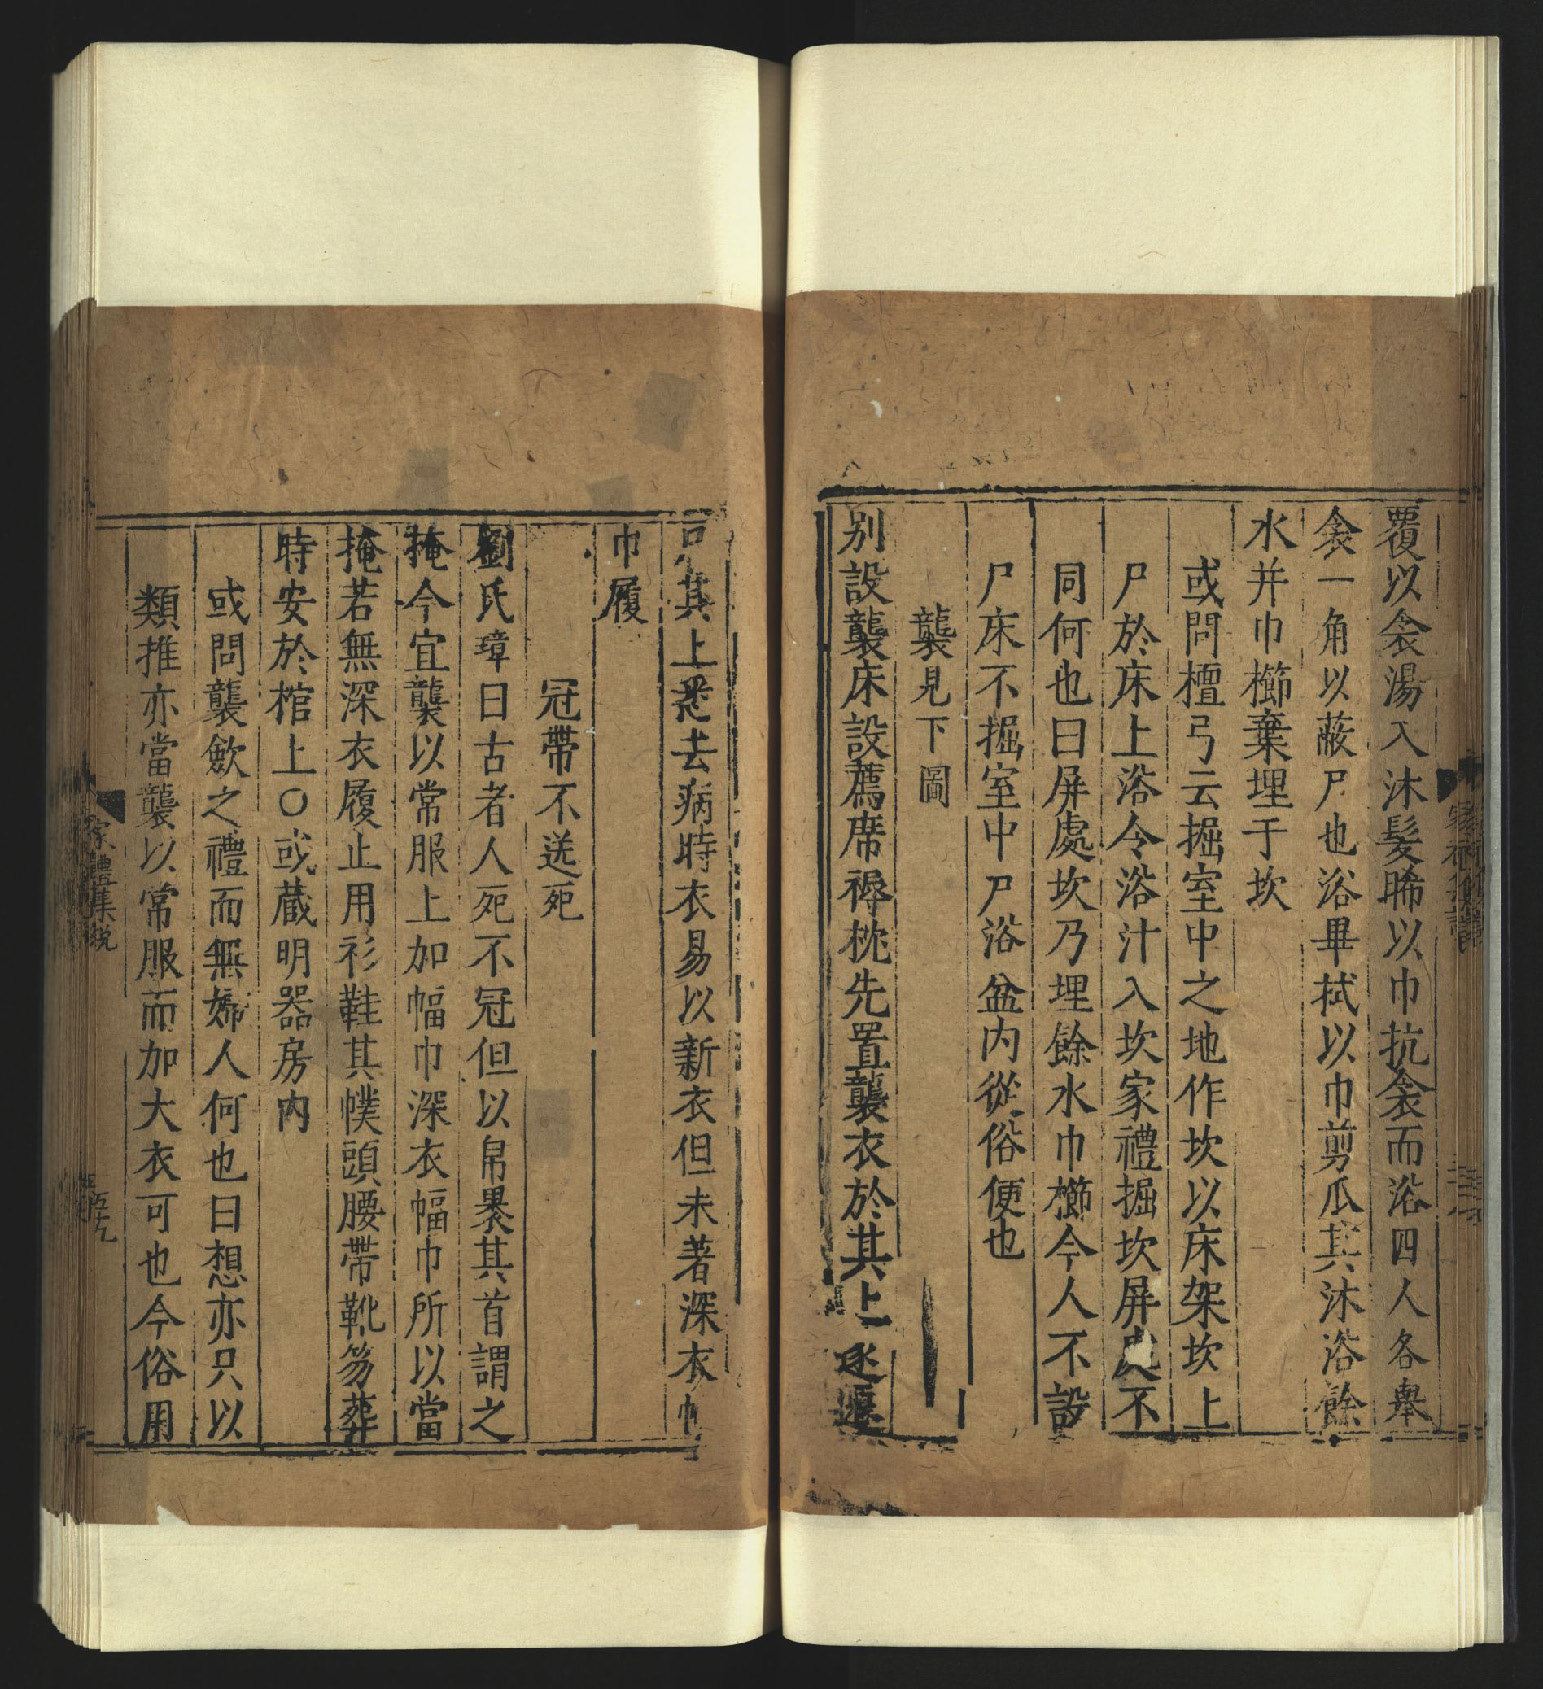 覆以衾湯入沐髮晞以巾抗衾而浴四人各舉
衾一角以蔽尸也浴畢拭以巾剪爪其沐浴餘
水并巾櫛棄埋于坎
或問檀弓云掘室中之地作坎以床架坎上
尸於床上浴令浴汁入坎家禮掘坎屏處不
同何也曰屏處坎乃埋餘水巾櫛今人不設
尸床不掘室中尸浴盆内從俗便也
襲見下圖
别設襲床設薦席褥枕先置襲衣於其上遂遷
其上悉去病時衣易以新衣但未著深衣
巾履
冠帶不送死
劉氏璋曰古者人死不冠但以帛裹其首謂之
掩今宜襲以常服上加幅巾深衣幅巾所以當
掩若無深衣履止用衫鞋其幞頭腰帶靴笏葬
時安於棺上〇或蔵明器房内
或問襲歛之禮而無婦人何也曰想亦只以
類推亦當襲以常服而加大衣可也今俗用
家禮集說